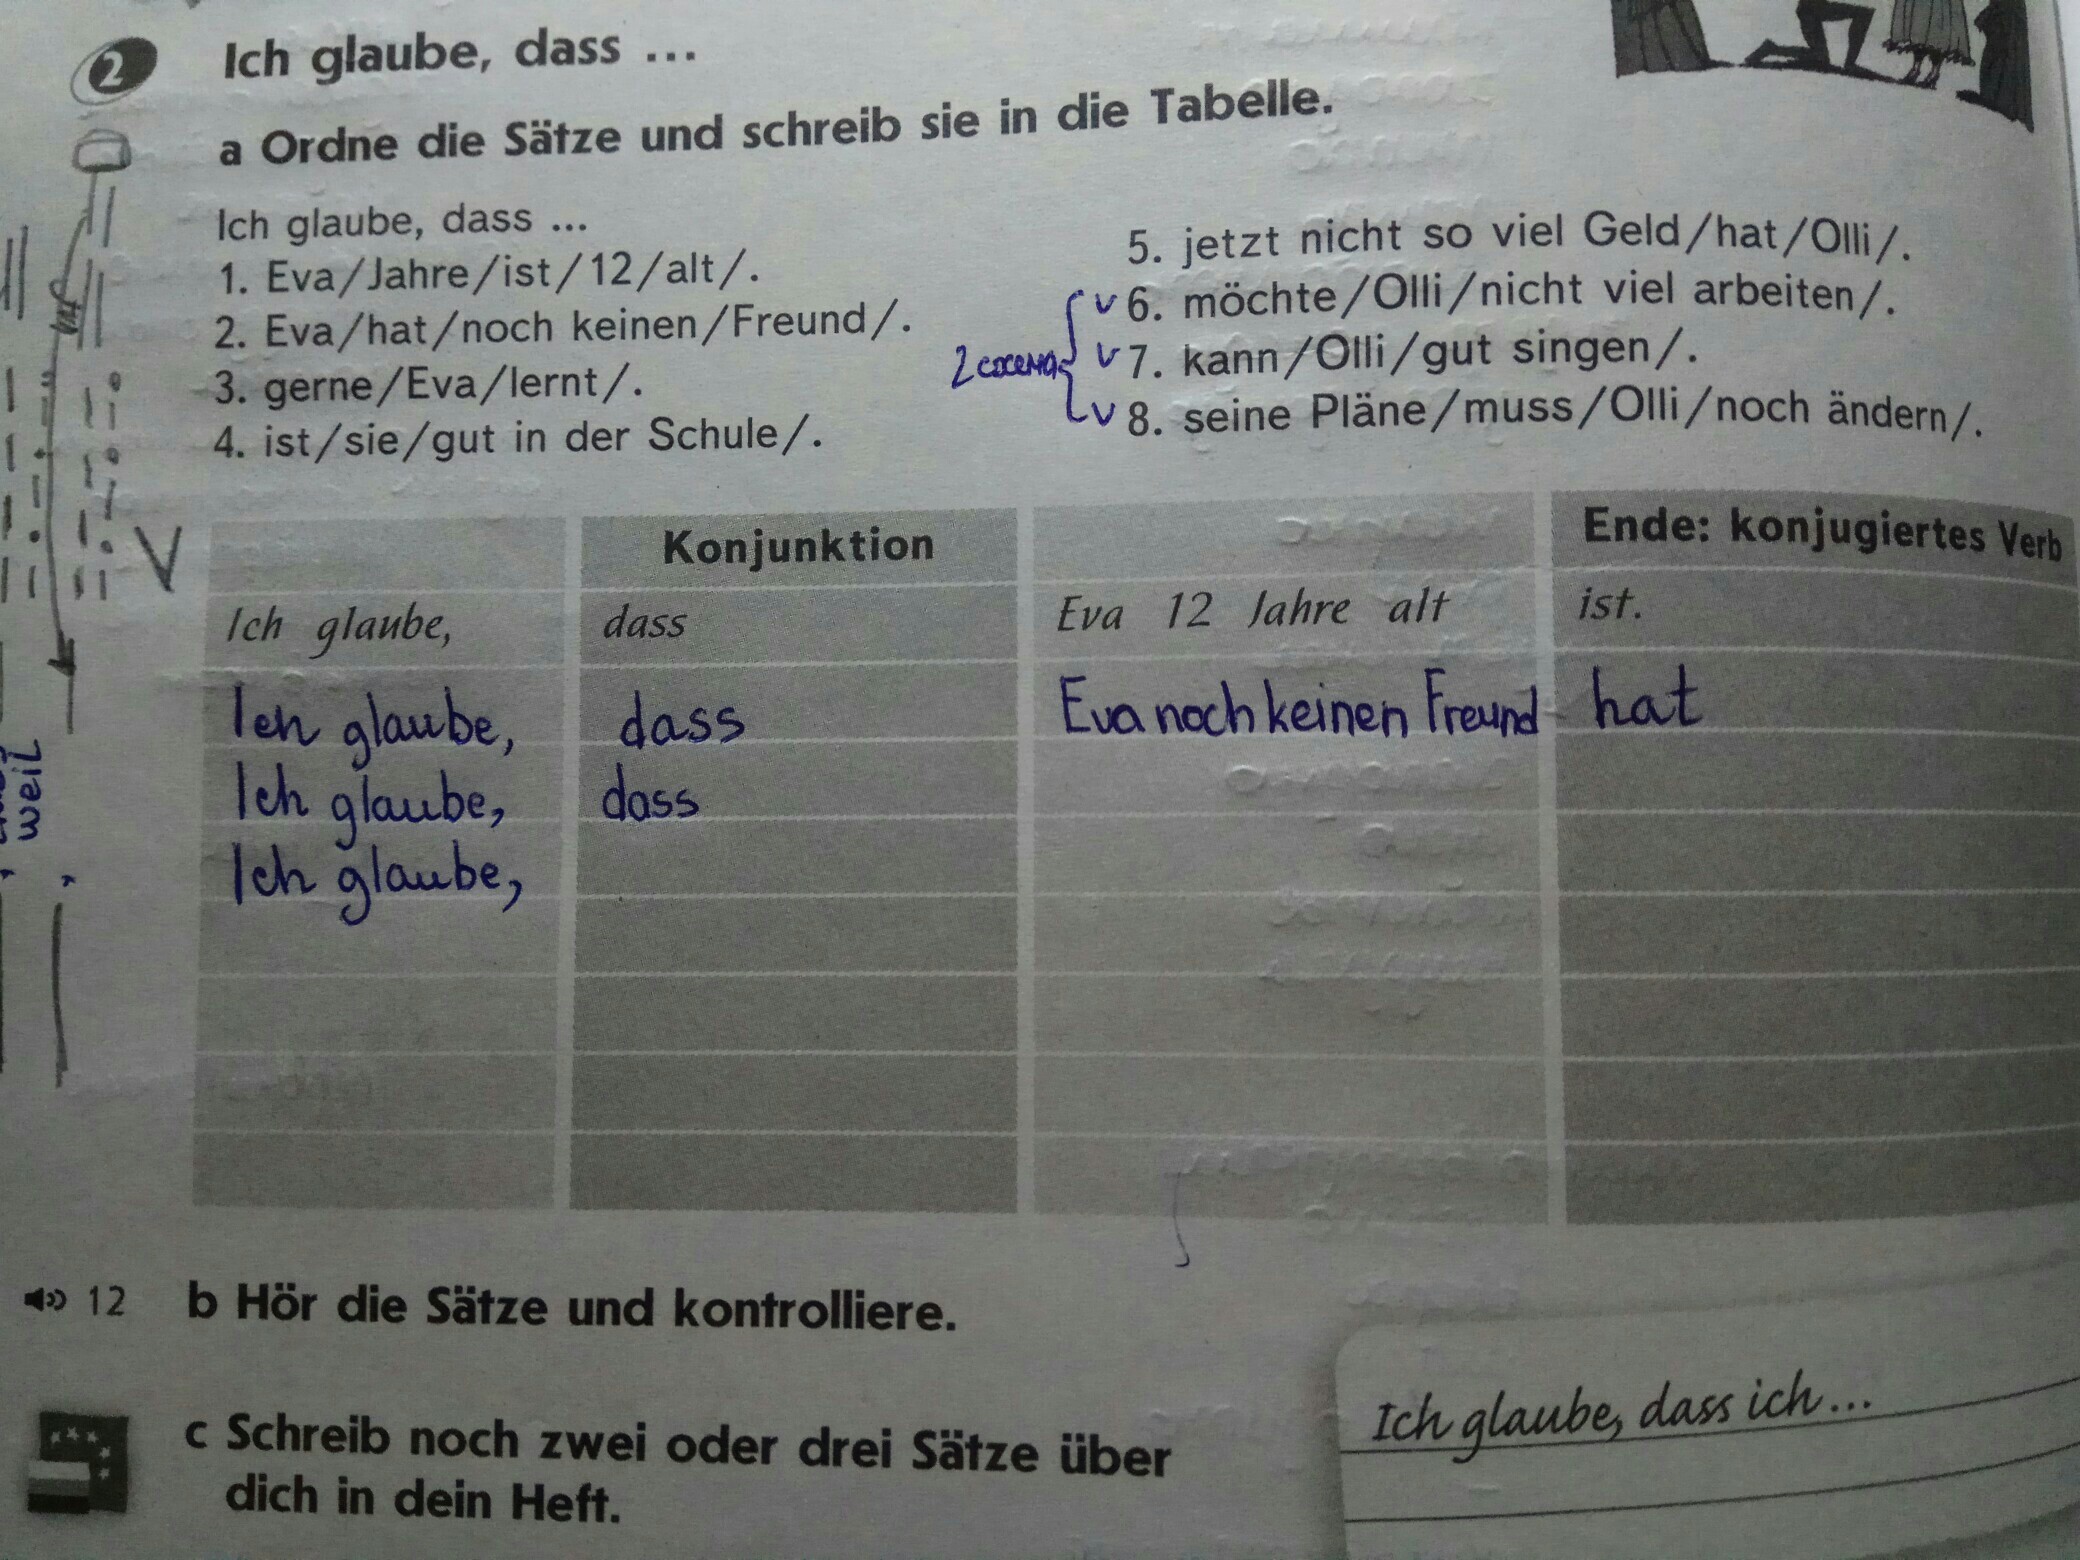 2 Ich glaube, dass ...
a Ordne die Sätze und schreib sie in die Tabelle.
Ich glaube, dass ...
1. Eva/Jahre/ist/12/alt/.
2. Eva/hat/noch keinen/Freund/.
3. gerne/Eva/lernt/.
4. ist/sie/gut in der Schule/.
5. jetzt nicht so viel Geld/hat/Olli/.
v 6. möchte/Olli/nicht viel arbeiten/.
v 7. kann/Olli/gut singen/.
v 8. seine Pläne/muss/Olli/noch ändern/.
2 схема
Konjunktion Ende: konjugiertes Verb
Ich glaube, dass Eva 12 Jahre alt ist.
Ich glaube, dass Eva noch keinen Freund hat
Ich glaube, dass
Ich glaube,
weil
12 b Hör die Sätze und kontrolliere.
c Schreib noch zwei oder drei Sätze über
dich in dein Heft.
Ich glaube, dass ich...